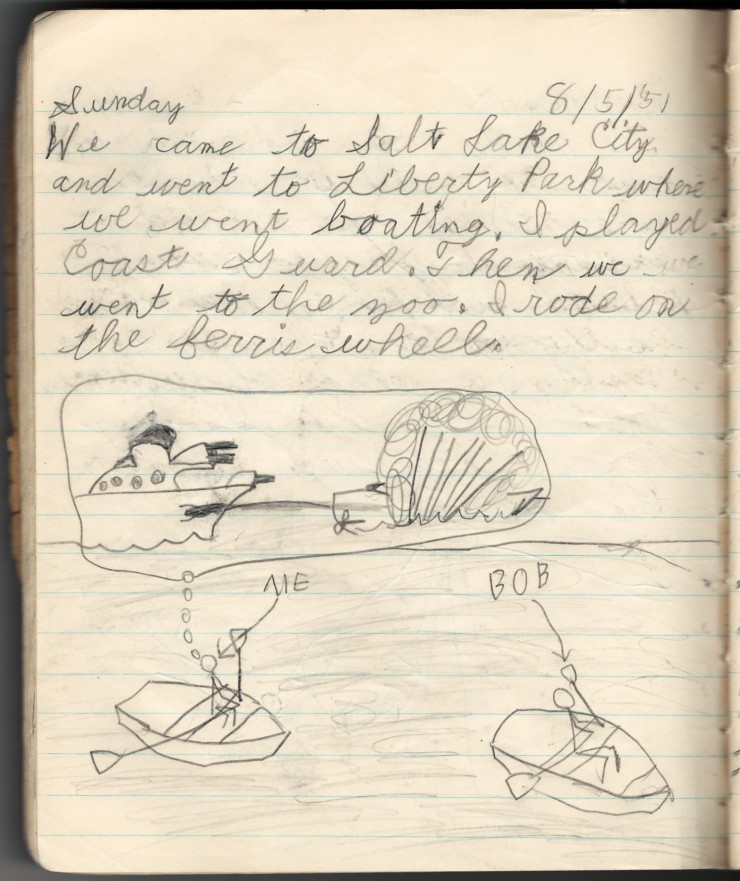 Sunday 8/5/51
We came to Salt Lake City
and went to Liberty Park where
we went boating. I played
Coast Guard. Then we
went to the zoo. I rode on
the ferris wheell.
ME BOB